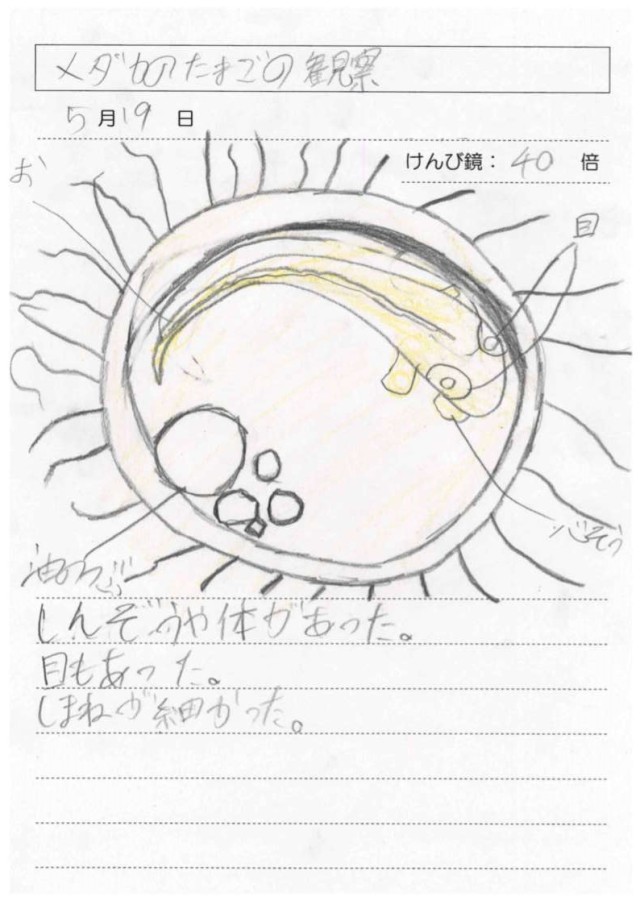 メダカのたまごの観察
5月19日
けんび鏡：40倍
お
目
心ぞう
油のつぶ
しんぞうや体があった。
目もあった。
しまねが細かった。